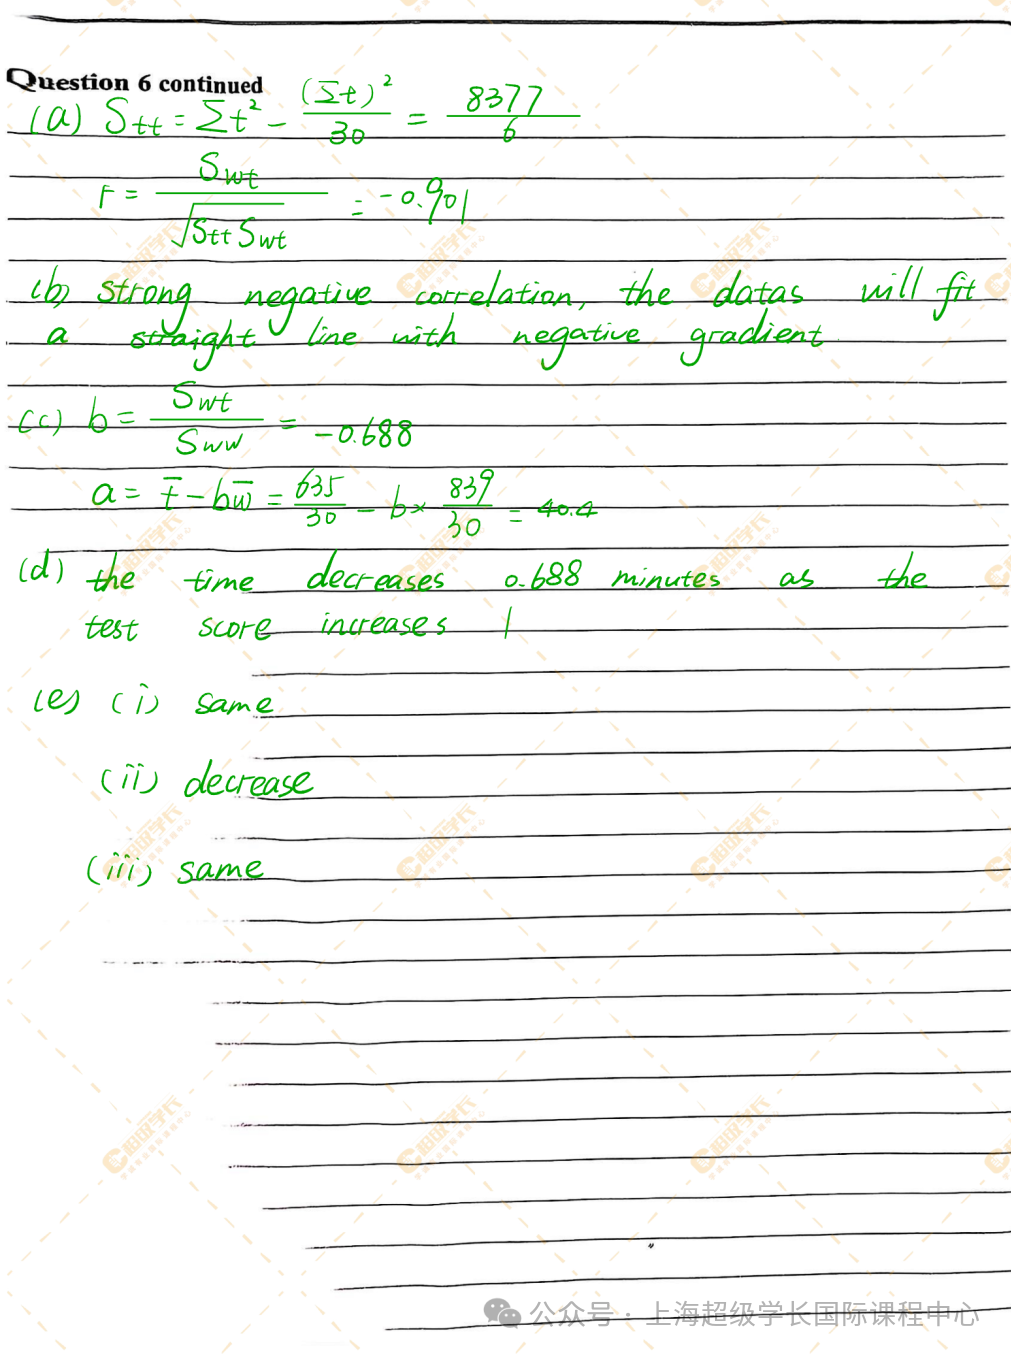 Question 6 continued
(a) Stt = Σt² - (Σt)²/30 = 8377/6
r = Swt/√Stt Swt = -0.901
(b) strong negative correlation, the datas will fit
a straight line with negative gradient
(c) b = Swt/Sww = -0.688
a = t̄ - bw̄ = 635/30 - b× 839/30 = 40.4
(d) the time decreases 0.688 minutes as the
test score increases 1
(e) (i) same
(ii) decrease
(iii) same
公众号 · 上海超级学长国际课程中心